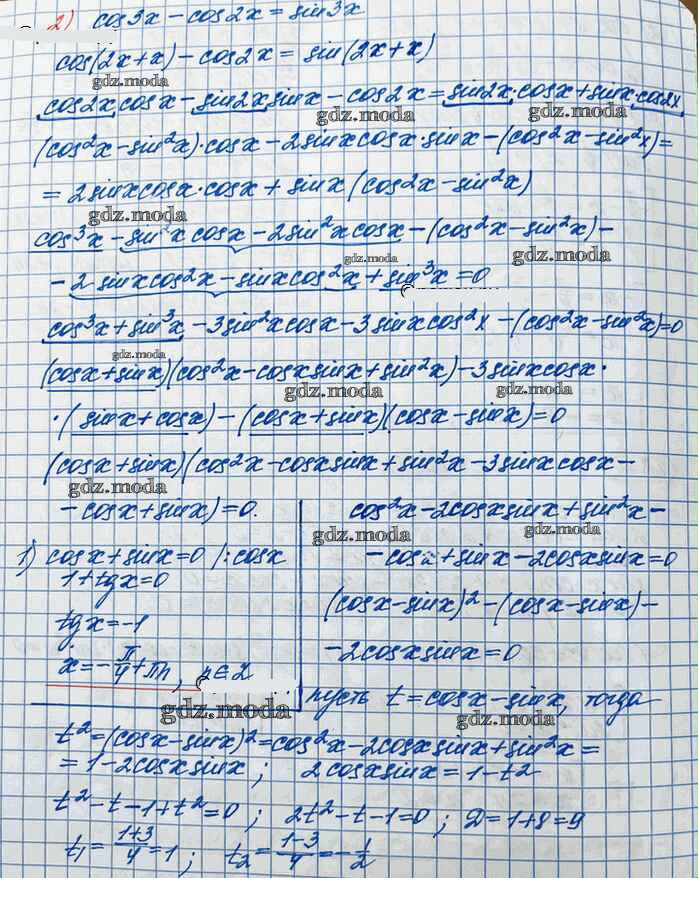 2) cos3x - cos2x = sin3x
cos(2x+x) - cos2x = sin(2x+x)
gdz.moda
cos2x cosx - sin2x sinx - cos2x = sin2x·cosx + sinx·cos2x
gdz.moda
(cos²x - sin²x)·cosx - 2sinxcosx·sinx - (cos²x - sin²x) =
= 2sinxcosx·cosx + sinx(cos2x - sin²x)
gdz.moda
cos³x - sin²x cosx - 2sin²x cosx - (cos²x - sin²x) -
gdz.moda
gdz.moda
- 2 sinxcos²x - sinxcos²x + sin³x = 0
cos³x + sin³x - 3sin²xcosx - 3sinxcos²x - (cos²x - sin²x) = 0
gdz.moda
(cosx + sinx)(cos²x - cosxsinx + sin²x) - 3sinxcosx·
gdz.moda
·(sinx + cosx) - (cosx + sinx)(cosx - sinx) = 0
(cosx + sinx)(cos²x - cosxsinx + sin²x - 3sinxcosx -
gdz.moda
- cosx + sinx) = 0.
1) cosx + sinx = 0 /:cosx
1 + tgx = 0
tgx = -1
x = -π/4 + πn, n∈Z
gdz.moda
cos²x - 2cosxsinx + sin²x -
gdz.moda
gdz.moda
- cosx + sinx - 2cosxsinx = 0
(cosx - sinx)² - (cosx - sinx) -
- 2cosxsinx = 0
пусть t = cosx - sinx, тогда
gdz.moda
t² = (cosx - sinx)² = cos²x - 2cosxsinx + sin²x =
= 1 - 2cosxsinx; 2cosxsinx = 1 - t²
t² - t - 1 + t² = 0; 2t² - t - 1 = 0; D = 1 + 8 = 9
t₁ = (1+3)/4 = 1; t₂ = (1-3)/4 = -1/2